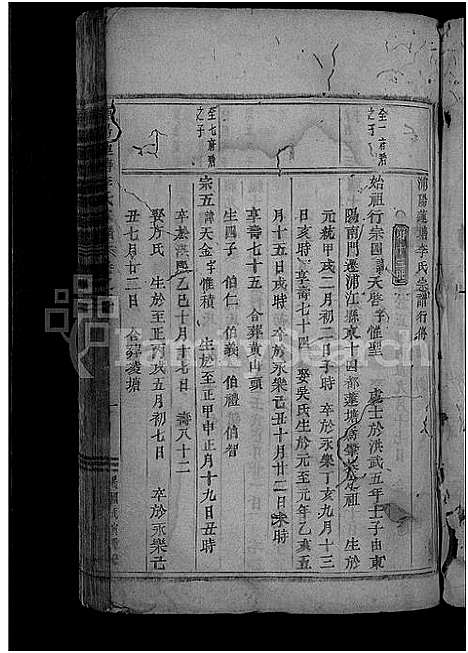 浦陽蓮塘李氏宗譜行傳
全一府君
之子
始祖行宗四諱天啓字惟聖 處士於洪武五年壬子由東
陽南門遷浦江縣東十四都蓮塘居肇 始祖 生於
元統甲戌二月初二日子時 卒於永樂丁亥九月十三
日亥時 享壽七十四 娶吳氏生於元至元年乙亥五
月十五日戌時 卒於永樂己丑十月廿二日未時
享壽七十五 合葬黃山頭
生四子 伯仁 伯義 伯禮 伯智
全七府君
之子
宗五諱天金字惟積 生於至正甲申正月十九日丑時
卒於洪熙乙巳十月十七日 壽八十二
娶方氏 生於至正丙戌五月初七日 卒於永樂己
丑七月廿二日 合葬菱塘
FamilySearch